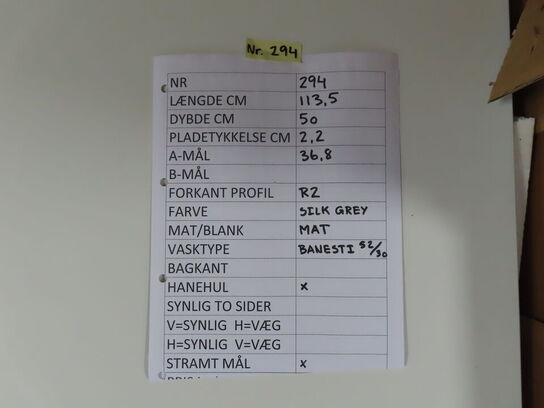 Nr. 294
NR 294
LÆNGDE CM 113,5
DYBDE CM 50
PLADETYKKELSE CM 2,2
A-MÅL 36,8
B-MÅL
FORKANT PROFIL R2
FARVE SILK GREY
MAT/BLANK MAT
VASKTYPE BANESTI 52/30
BAGKANT
HANEHUL x
SYNLIG TO SIDER
V=SYNLIG H=VÆG
H=SYNLIG V=VÆG
STRAMT MÅL x